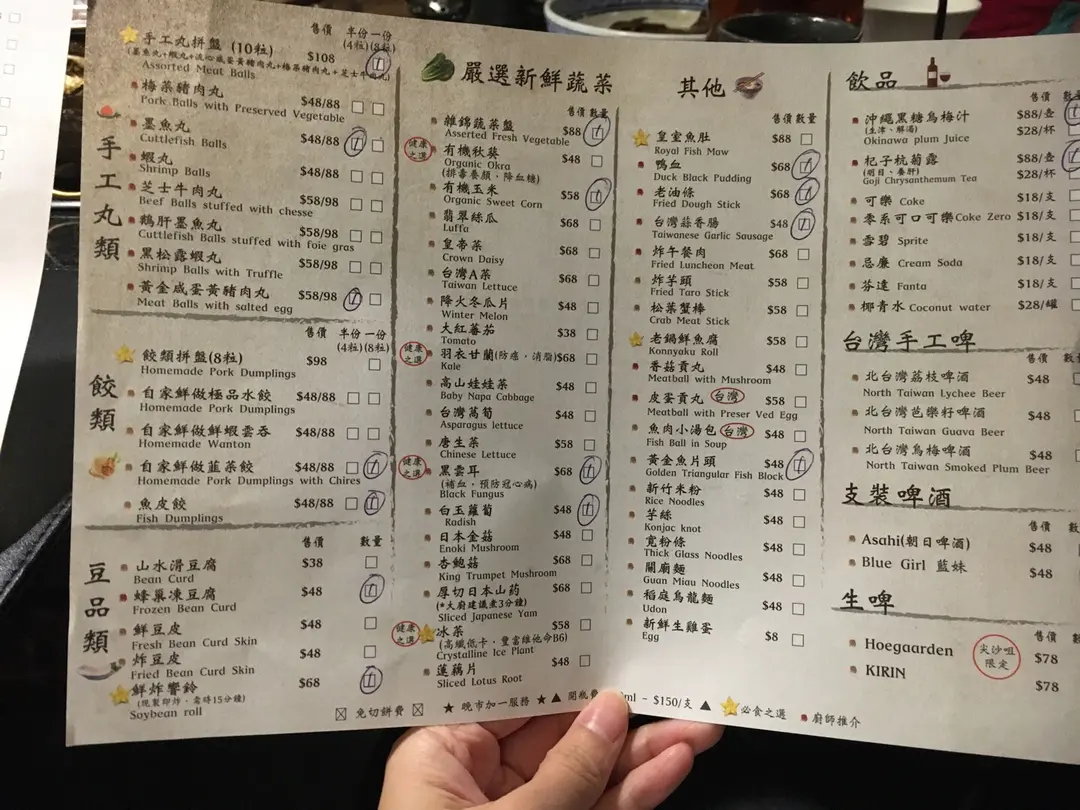 售價 半份一份
(4粒)(8粒)
手工丸拼盤 (10粒) $108
(墨魚丸+蝦丸+流心咸蛋黃豬肉丸+梅菜豬肉丸+芝士牛肉丸)
Assorted Meat Balls
手工丸類
梅菜豬肉丸 $48/88
Pork Balls with Preserved Vegetable
墨魚丸 $48/88
Cuttlefish Balls
蝦丸 $48/88
Shrimp Balls
芝士牛肉丸 $58/98
Beef Balls stuffed with chesse
鵝肝墨魚丸 $58/98
Cuttlefish Balls stuffed with foie gras
黑松露蝦丸 $58/98
Shrimp Balls with Truffle
黃金咸蛋黃豬肉丸 $58/98
Meat Balls with salted egg
售價 半份一份
(4粒)(8粒)
餃類
餃類拼盤(8粒) $98
Homemade Pork Dumplings
自家鮮做極品水餃 $48/88
Homemade Pork Dumplings
自家鮮做鮮蝦雲吞 $48/88
Homemade Wanton
自家鮮做韮菜餃 $48/88
Homemade Pork Dumplings with Chires
魚皮餃 $48/88
Fish Dumplings
售價 數量
豆品類
山水滑豆腐 $38
Bean Curd
蜂巢凍豆腐 $48
Frozen Bean Curd
鮮豆皮 $48
Fresh Bean Curd Skin
炸豆皮 $48
Fried Bean Curd Skin
鮮炸響鈴 $68
(現製即炸，需時15分鐘)
Soybean roll
嚴選新鮮蔬菜
售價 數量
雜錦蔬菜盤 $88
Asserted Fresh Vegetable
健康之選
有機秋葵 $48
Organic Okra
(排毒養顏，降血糖)
有機玉米 $58
Organic Sweet Corn
翡翠絲瓜 $68
Luffa
皇帝菜 $68
Crown Daisy
台灣A菜 $68
Taiwan Lettuce
降火冬瓜片 $48
Winter Melon
大紅蕃茄 $38
Tomato
健康之選
羽衣甘蘭(防癌，消脂) $68
Kale
高山娃娃菜 $48
Baby Napa Cabbage
台灣萵筍 $48
Asparagus lettuce
唐生菜 $58
Chinese Lettuce
健康之選
黑雲耳 $68
(補血，預防冠心病)
Black Fungus
白玉蘿蔔 $48
Radish
日本金菇 $48
Enoki Mushroom
杏鮑菇 $68
King Trumpet Mushroom
厚切日本山药 $68
(*大廚建議煮3分鐘)
Sliced Japanese Yam
健康之選
冰菜 $58
(高纖低卡，豐富維他命B6)
Crystalline Ice Plant
蓮藕片 $48
Sliced Lotus Root
其他
售價 數量
皇室魚肚 $88
Royal Fish Maw
鴨血 $68
Duck Black Pudding
老油條 $68
Fried Dough Stick
台灣蒜香腸 $48
Taiwanese Garlic Sausage
炸午餐肉 $68
Fried Luncheon Meat
炸芋頭 $58
Fried Taro Stick
松葉蟹棒 $58
Crab Meat Stick
老鍋鮮魚腐 $58
Konnyaku Roll
香菇貢丸 $48
Meatball with Mushroom
皮蛋貢丸 台灣 $58
Meatball with Preser Ved Egg
魚肉小湯包 台灣 $48
Fish Ball in Soup
黃金魚片頭 $48
Golden Triangular Fish Block
新竹米粉 $48
Rice Noodles
芋絲 $48
Konjac knot
寬粉條 $48
Thick Glass Noodles
關廟麵 $48
Guan Miau Noodles
稻庭烏龍麵 $48
Udon
新鮮生雞蛋 $8
Egg
飲品
售價 數量
沖繩黑糖烏梅汁 $88/壺
(生津、解渴) $28/杯
Okinawa plum Juice
杞子杭菊露 $88/壺
(明目、養肝) $28/杯
Goji Chrysanthemum Tea
可樂 Coke $18/支
零系可口可樂Coke Zero $18/支
雪碧 Sprite $18/支
忌廉 Cream Soda $18/支
芬達 Fanta $18/支
椰青水 Coconut water $28/罐
台灣手工啤
售價
北台灣荔枝啤酒 $48
North Taiwan Lychee Beer
北台灣芭樂籽啤酒 $48
North Taiwan Guava Beer
北台灣烏梅啤酒 $48
North Taiwan Smoked Plum Beer
支裝啤酒
售價
Asahi(朝日啤酒) $48
Blue Girl 藍妹 $48
生啤
售價
Hoegaarden $78
KIRIN $78
尖沙咀限定
免切餅費 ★ 晚市加一服務 ★ ▲ 開瓶費 ml - $150/支 ▲ 必食之選 廚師推介